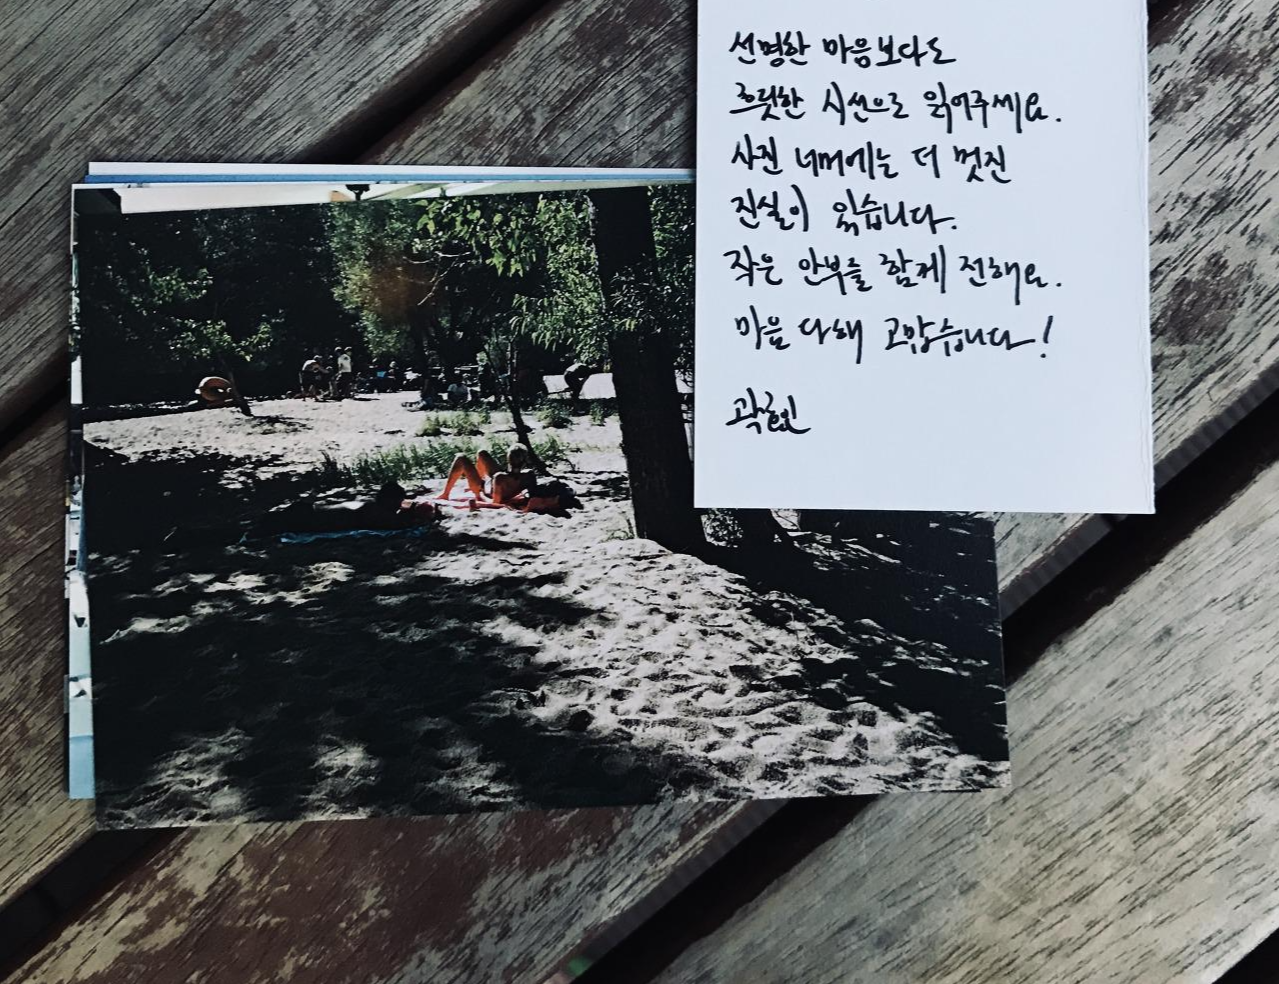 선명한 마음보다도
흐릿한 시선으로 읽어주세요.
사진 너머에는 더 멋진
진실이 있습니다.
작은 안부를 함께 전해요.
마음 다해 고맙습니다!
곽효빈